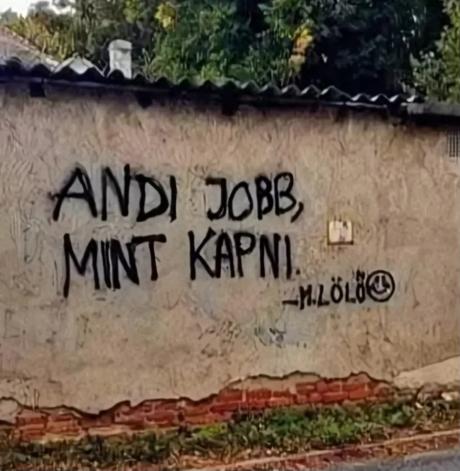 ANDI JOBB,
MINT KAPNI.
-M.LÖLŐ